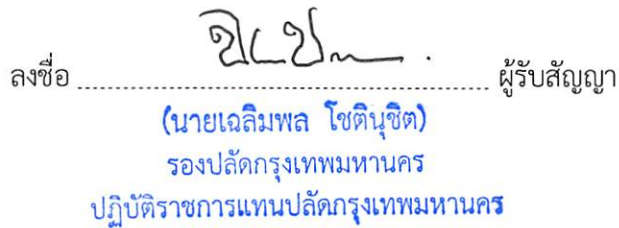 ลงชื่อ ........................................ ผู้รับสัญญา
(นายเฉลิมพล โชตินุชิต)
รองปลัดกรุงเทพมหานคร
ปฏิบัติราชการแทนปลัดกรุงเทพมหานคร